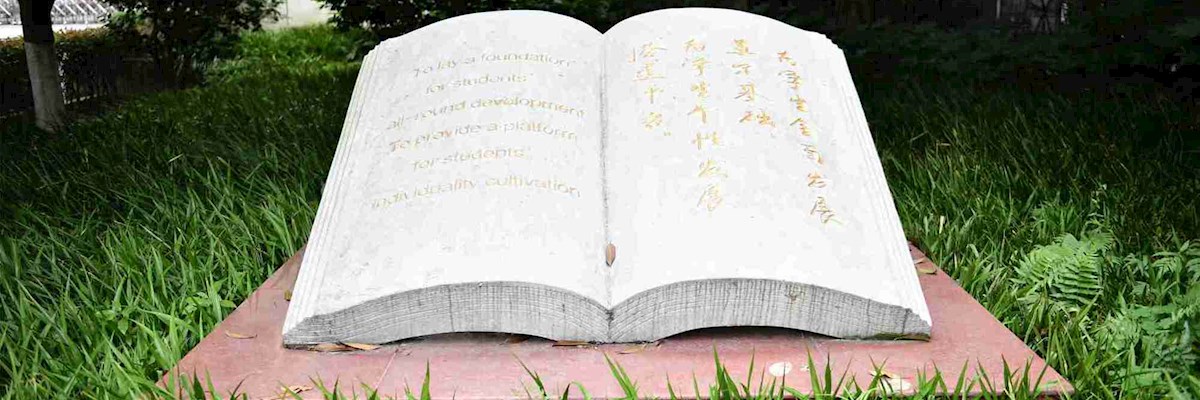 To lay a foundation
for students'
all-round development
To provide a platform
for students'
individuality cultivation
为学生全面发展
奠定基础
为学生个性发展
搭建平台